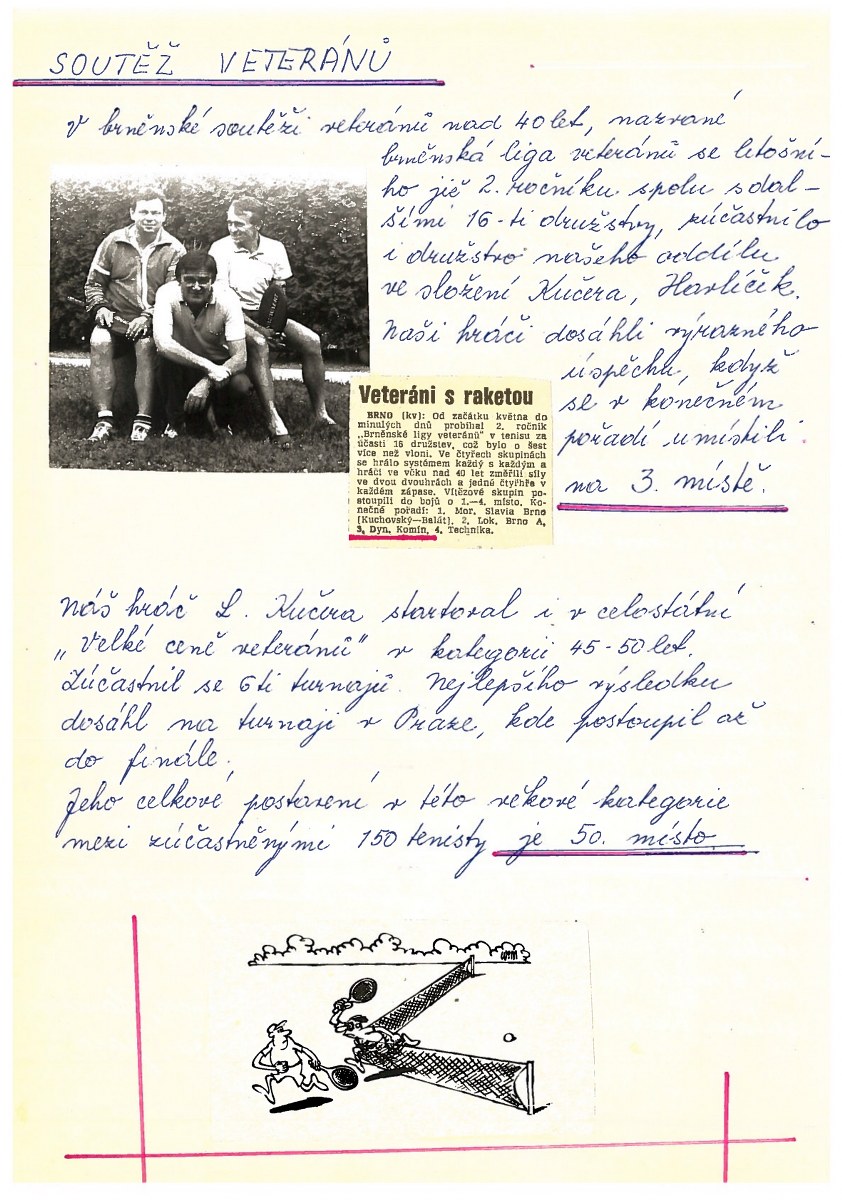 SOUTĚŽ VETERÁNŮ
V brněnské soutěži veteránů nad 40 let, nazvané
brněnská liga veteránů se letošní-
ho již 2. ročníku spolu s dal-
šími 16-ti družstvy, zúčastnilo
i družstvo našeho oddílu
ve složení Kučera, Havlíček.
Naši hráči dosáhli výrazného
úspěchu, když
se v konečném
pořadí umístili
na 3. místě.
Veteráni s raketou
BRNO (kv): Od začátku května do
minulých dnů probíhal 2. ročník
„Brněnské ligy veteránů" v tenisu za
účasti 16 družstev, což bylo o šest
více než vloni. Ve čtyřech skupinách
se hrálo systémem každý s každým a
hráči ve věku nad 40 let změřili síly
ve dvou dvouhrách a jedné čtyřhře v
každém zápase. Vítězové skupin po-
stoupili do bojů o 1.—4. místo. Ko-
nečné pořadí: 1. Mor. Slavia Brno
(Kuchovský—Balát), 2. Lok. Brno A,
3. Dyn. Komín, 4. Technika.
Náš hráč L. Kučera startoval i v celostátní
„Velké ceně veteránů" v kategorii 45-50 let.
Zúčastnil se 6ti turnajů. Nejlepšího výsledku
dosáhl na turnaji v Praze, kde postoupil až
do finále.
Jeho celkové postavení v této věkové kategorie
mezi zúčastněnými 150 tenisty je 50. místo.